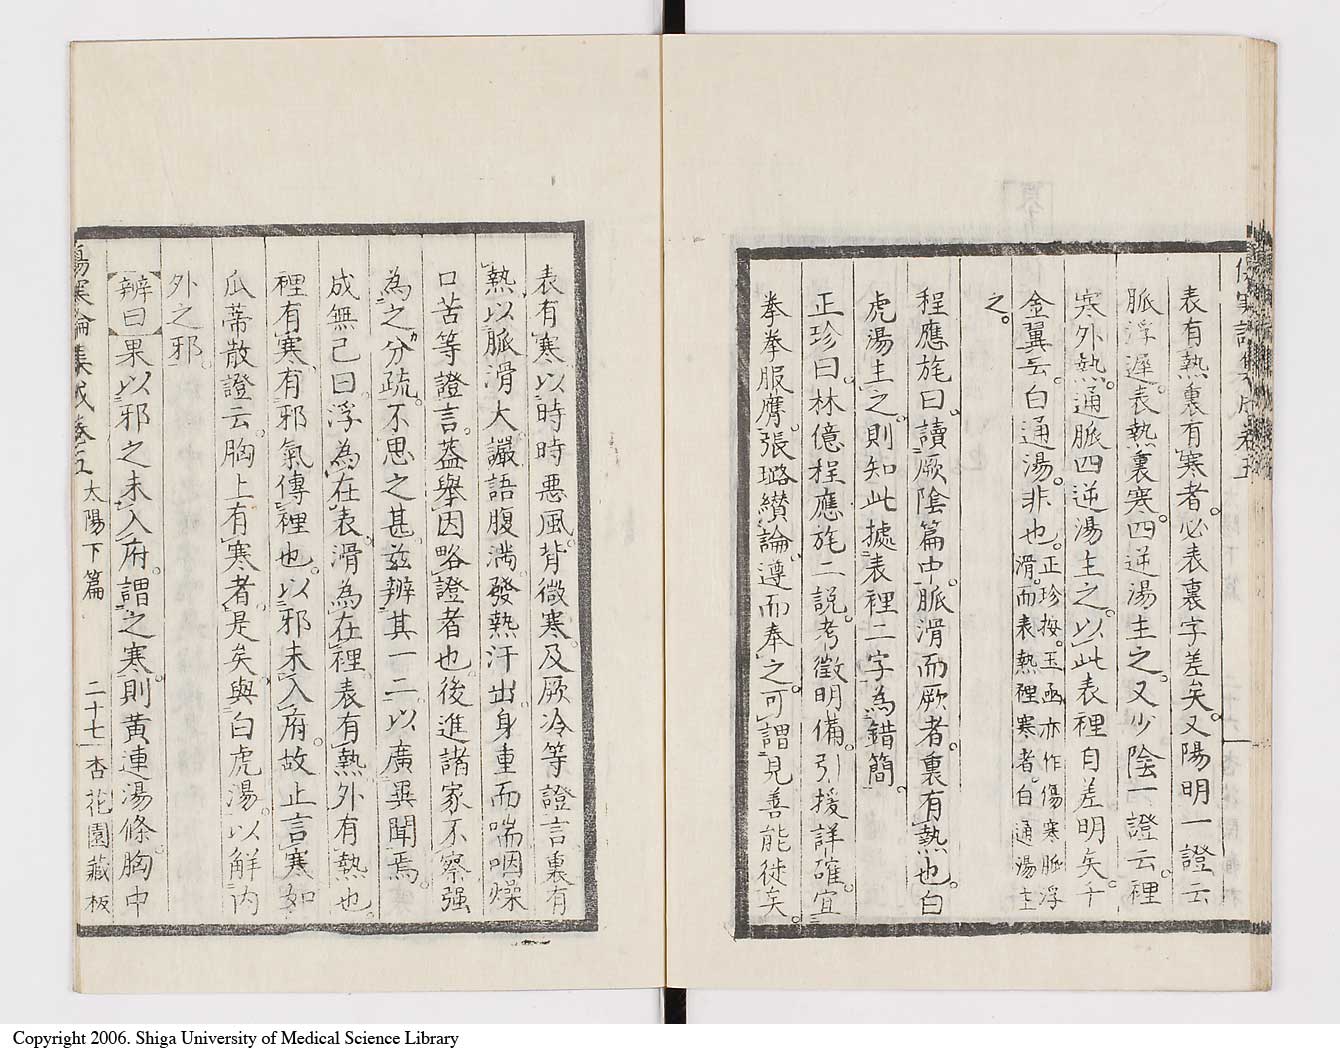 表有熱裏有寒者。必表裏字差矣。又陽明一證云
脈浮遲。表熱裏寒。四逆湯主之。又少陰一證云。裡
寒外熱。通脈四逆湯主之。以此表裡自差明矣。千
金翼云。白通湯。非也。正珍按。玉函亦作傷寒脈浮
滑。而表熱裡寒者。白通湯主
之。
程應旄曰。讀厥陰篇中。脈滑而厥者。裏有熱也。白
虎湯主之。則知此據表裡二字為錯簡。
正珍曰。林億程應旄二說。考徵明備。引援詳確。宜
拳拳服膺。張璐纘論。遵而奉之。可謂見善能徙矣。
表有寒。以時時悪風。背微寒。及厥冷等證言。裏有
熱。以脈滑大讝語腹満發熱汗出。身重而喘咽燥
口苦等證言。蓋舉因略證者也。後進諸家不察强
為之分疏。不思之甚。茲辨其一二。以廣異聞焉。
成無己曰。浮為在表。滑為在裡。表有熱。外有熱也。
裡有寒。有邪氣傳裡也。以邪未入府。故止言寒。如
瓜蒂散證云。胸上有寒者。是矣。與白虎湯。以解内
外之邪。
辨曰果以邪之未入府。謂之寒。則黄連湯條。胸中
傷寒論集成卷五 太陽下篇 二十七 杏花園藏板
Copyright 2006. Shiga University of Medical Science Library